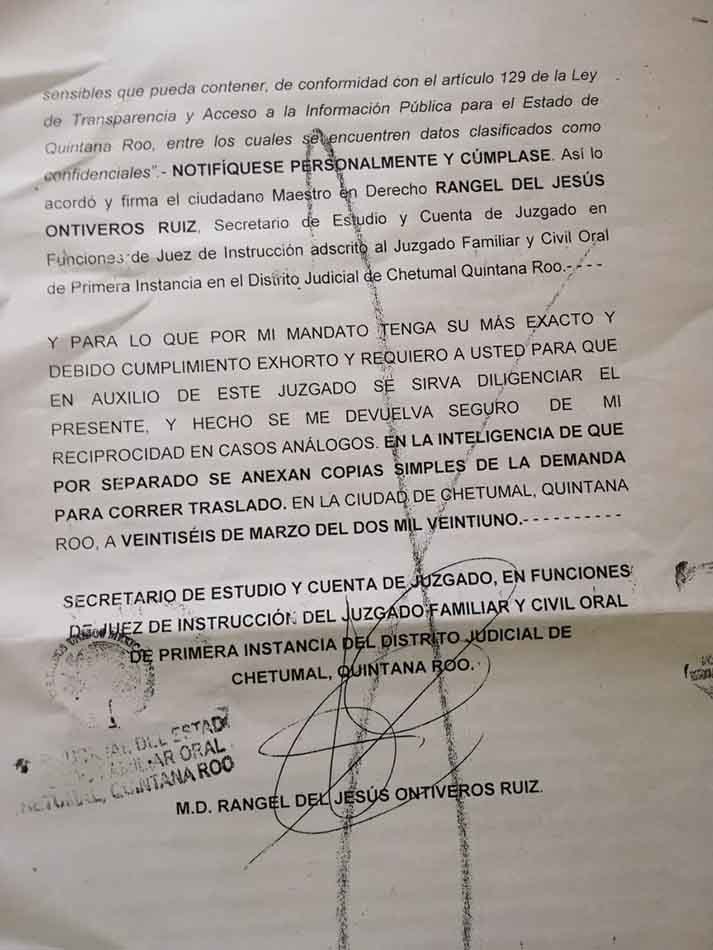 sensibles que pueda contener, de conformidad con el artículo 129 de la Ley
de Transparencia y Acceso a la Información Pública para el Estado de
Quintana Roo, entre los cuales se encuentren datos clasificados como
confidenciales".- NOTIFÍQUESE PERSONALMENTE Y CÚMPLASE. Así lo
acordó y firma el ciudadano Maestro en Derecho RANGEL DEL JESÚS
ONTIVEROS RUIZ, Secretario de Estudio y Cuenta de Juzgado en
Funciones de Juez de Instrucción adscrito al Juzgado Familiar y Civil Oral
de Primera Instancia en el Distrito Judicial de Chetumal Quintana Roo.- - - -
Y PARA LO QUE POR MI MANDATO TENGA SU MÁS EXACTO Y
DEBIDO CUMPLIMIENTO EXHORTO Y REQUIERO A USTED PARA QUE
EN AUXILIO DE ESTE JUZGADO SE SIRVA DILIGENCIAR EL
PRESENTE, Y HECHO SE ME DEVUELVA SEGURO DE MI
RECIPROCIDAD EN CASOS ANÁLOGOS. EN LA INTELIGENCIA DE QUE
POR SEPARADO SE ANEXAN COPIAS SIMPLES DE LA DEMANDA
PARA CORRER TRASLADO. EN LA CIUDAD DE CHETUMAL, QUINTANA
ROO, A VEINTISÉIS DE MARZO DEL DOS MIL VEINTIUNO.- - - - - - - - - -
SECRETARIO DE ESTUDIO Y CUENTA DE JUZGADO, EN FUNCIONES
DE JUEZ DE INSTRUCCIÓN DEL JUZGADO FAMILIAR Y CIVIL ORAL
DE PRIMERA INSTANCIA DEL DISTRITO JUDICIAL DE
CHETUMAL, QUINTANA ROO.
DEL ESTAD
ORAL
QUINTANA ROO
M.D. RANGEL DEL JESÚS ONTIVEROS RUIZ.